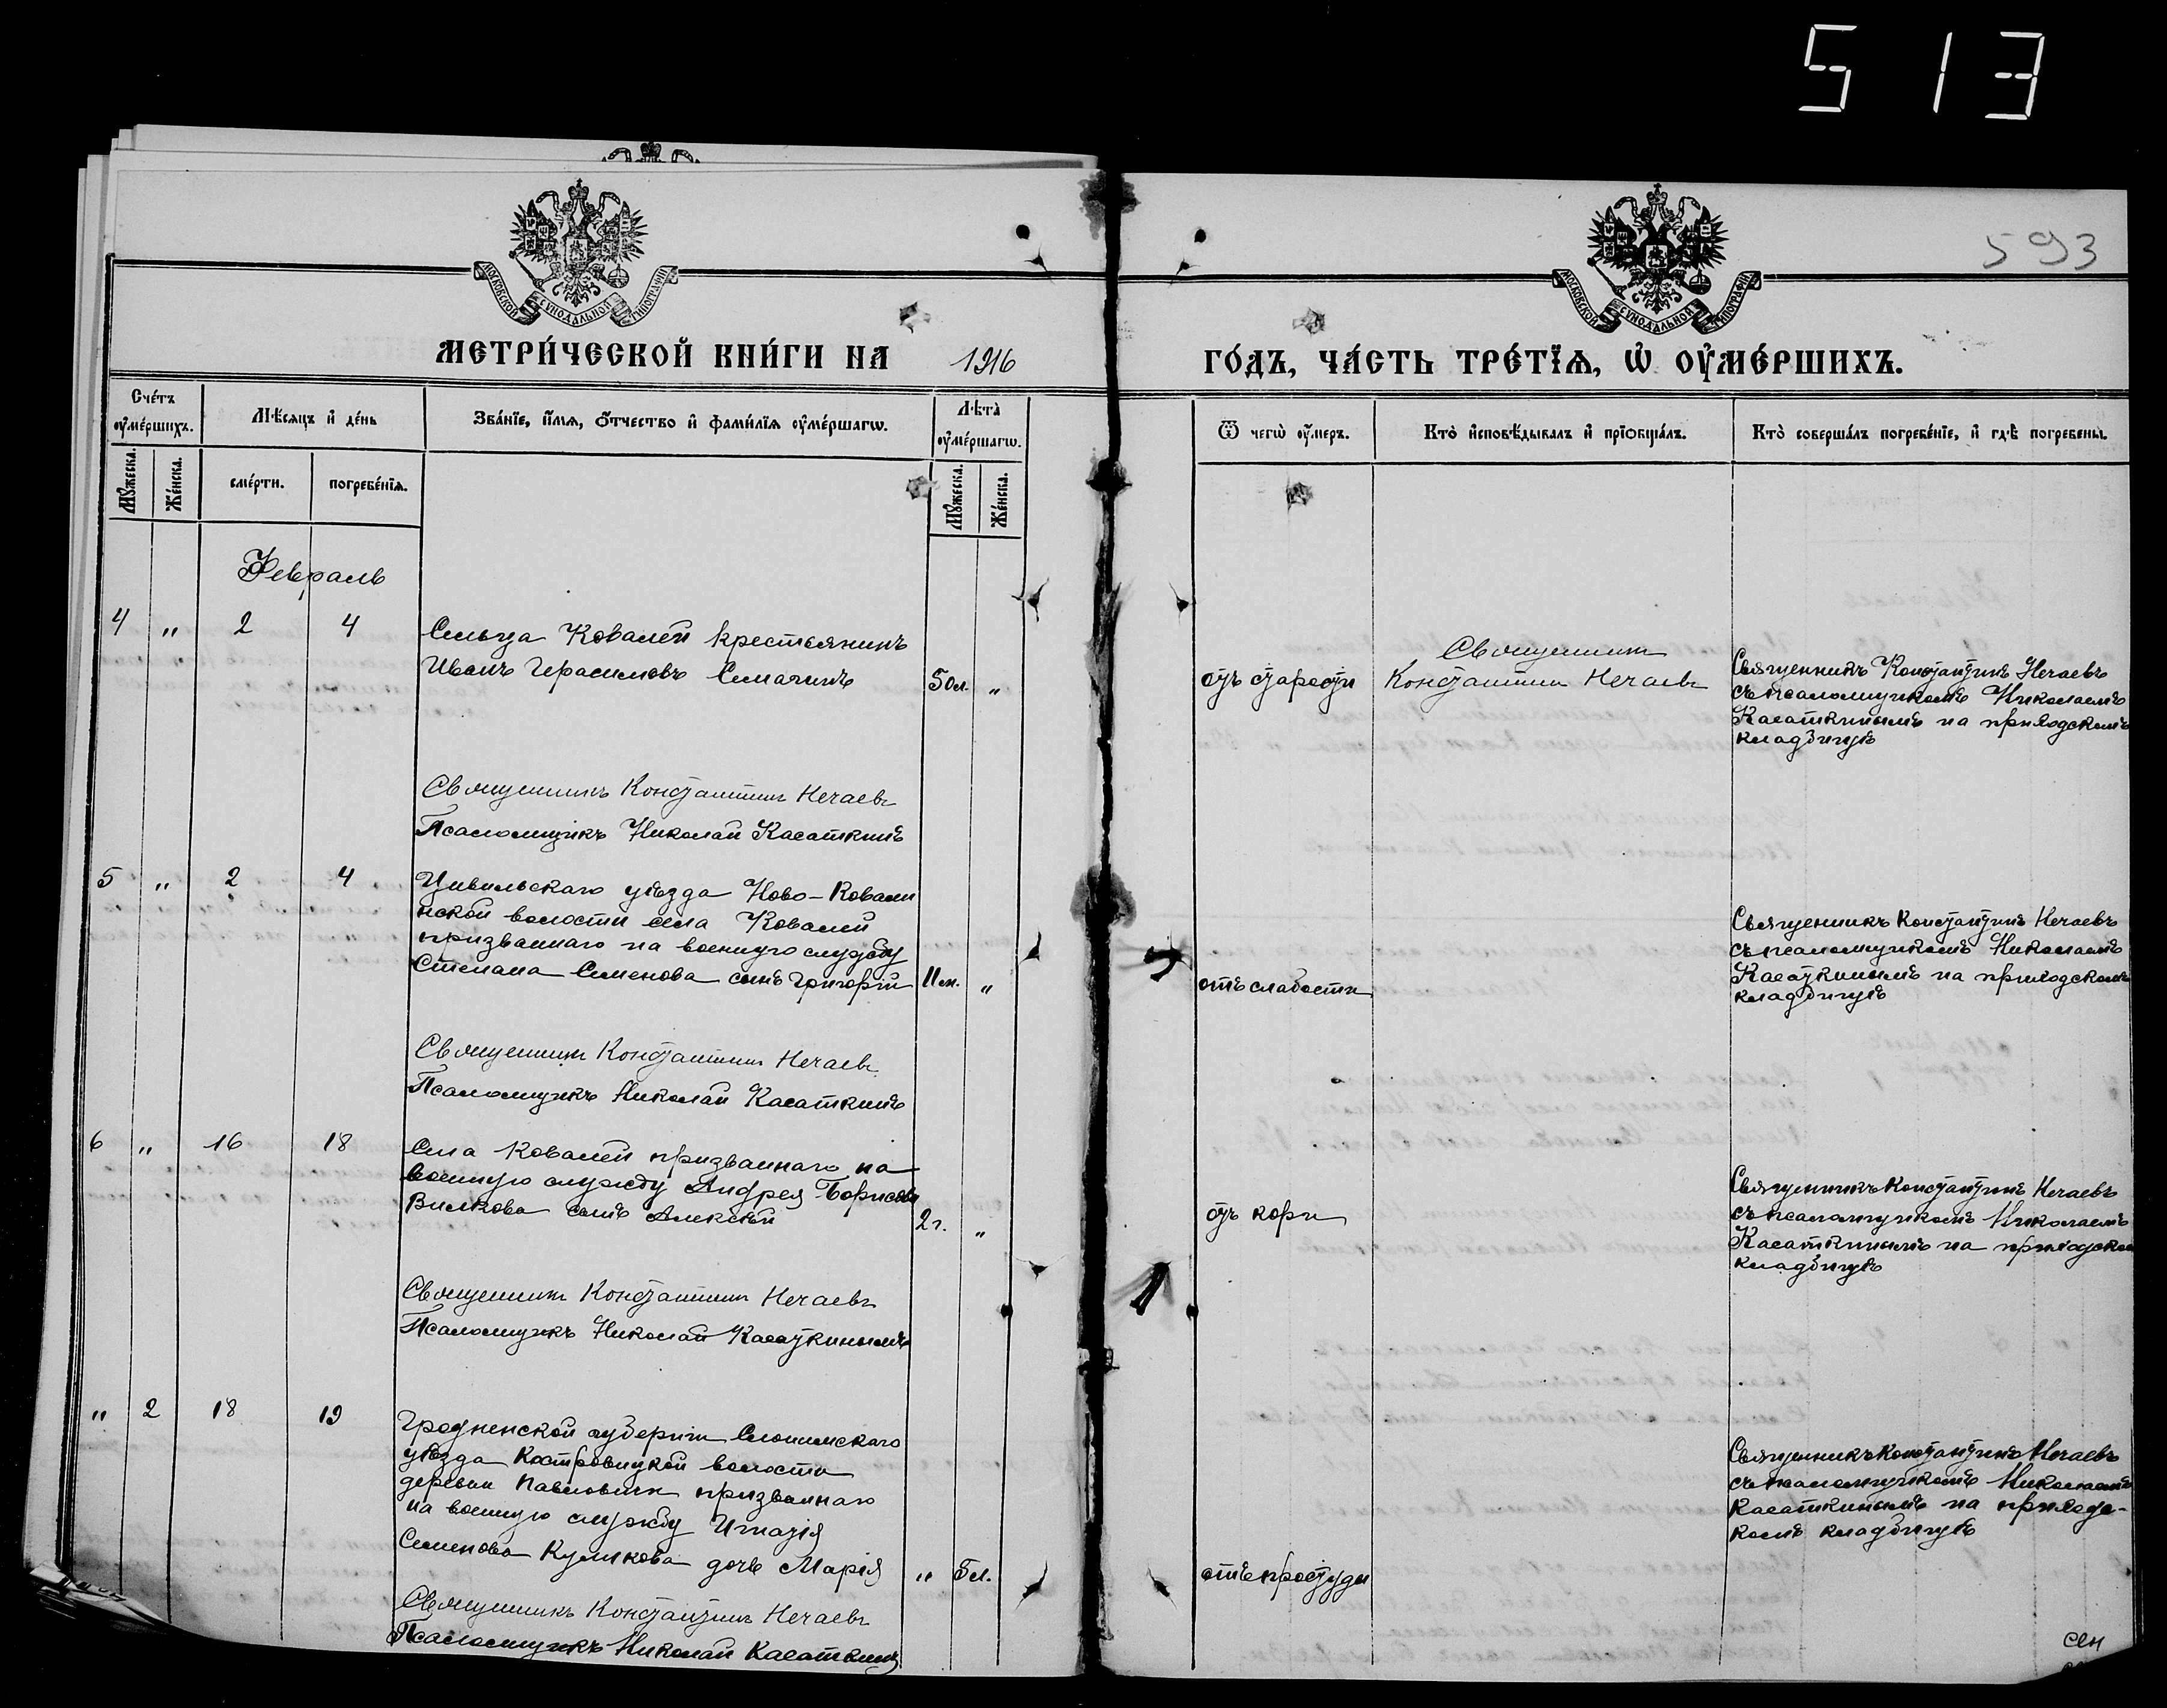 513
МОСКОВСКОЙ СѴНОДАЛЬНОЙ ТИПОГРАФІИ
МОСКОВСКОЙ СѴНОДАЛЬНОЙ ТИПОГРАФІИ
593
МЕТРИ́ЧЕСКОЙ КНИ́ГИ НА 1916
ГО́ДЪ, ЧА́СТЬ ТРЕ́ТЇѦ, Ѡ҆ ОУ҆МЕ́РШИХЪ.
Сче́тъ
оу҆ме́ршихъ.
Мѣ́сяцъ и҆ де́нь
Зва́нїе, и҆́мѧ, ѻ҆́тчество и҆ фами́лїѧ оу҆ме́ршагѡ.
Лѣ́та
оу҆ме́ршагѡ.
Ѿ чегѡ̀ оу҆́меръ.
Кто̀ и҆сповѣ́дывалъ и҆ прїѡбща́лъ.
Кто̀ соверша́лъ погребе́нїе, и҆ гдѣ̀ погребены̀.
Мꙋ́жеска.
Же́нска.
сме́рти.
погребе́нїѧ.
Мꙋ́жеска.
Же́нска.
Февраль
4 " 2 4
Сельца Ковалей крестьянинъ
Иванъ Герасимовъ Симагинъ 50л. "
отъ старости
Священникъ
Константинъ Нечаевъ
Священникъ Константинъ Нечаевъ
съ псаломщикомъ Николаемъ
Касаткинымъ на приходскомъ
кладбищѣ
Священникъ Константинъ Нечаевъ
Псаломщикъ Николай Касаткинъ
5 " 2 4
Цивильскаго уѣзда Ново-Ковалин
ской волости села Ковалей
призваннаго на военную службу
Степана Семенова сынъ Григорій 11м. "
отъ слабости
Священникъ Константинъ Нечаевъ
съ псаломщикомъ Николаемъ
Касаткинымъ на приходскомъ
кладбищѣ
Священникъ Константинъ Нечаевъ
Псаломщикъ Николай Касаткинъ
6 " 16 18
Села Ковалей призваннаго на
военную службу Андрея Борисова
Вилкова сынъ Алексѣй 2г. "
отъ кори
Священникъ Константинъ Нечаевъ
съ псаломщикомъ Николаемъ
Касаткинымъ на приходском
кладбищѣ
Священникъ Константинъ Нечаевъ
Псаломщикъ Николай Касаткинымъ
" 2 18 19
Гродненской губерніи Слонимскаго
уѣзда Костровицкой волости
деревни Павловичи призваннаго
на военную службу Игнатія
Семенова Куликова дочь Марія " 5л.
отъ простуды
Священникъ Константинъ Нечаевъ
съ псаломщикомъ Николаемъ
Касаткинымъ на приходс-
комъ кладбищѣ
Священникъ Константинъ Нечаевъ
Псаломщикъ Николай Касаткинъ